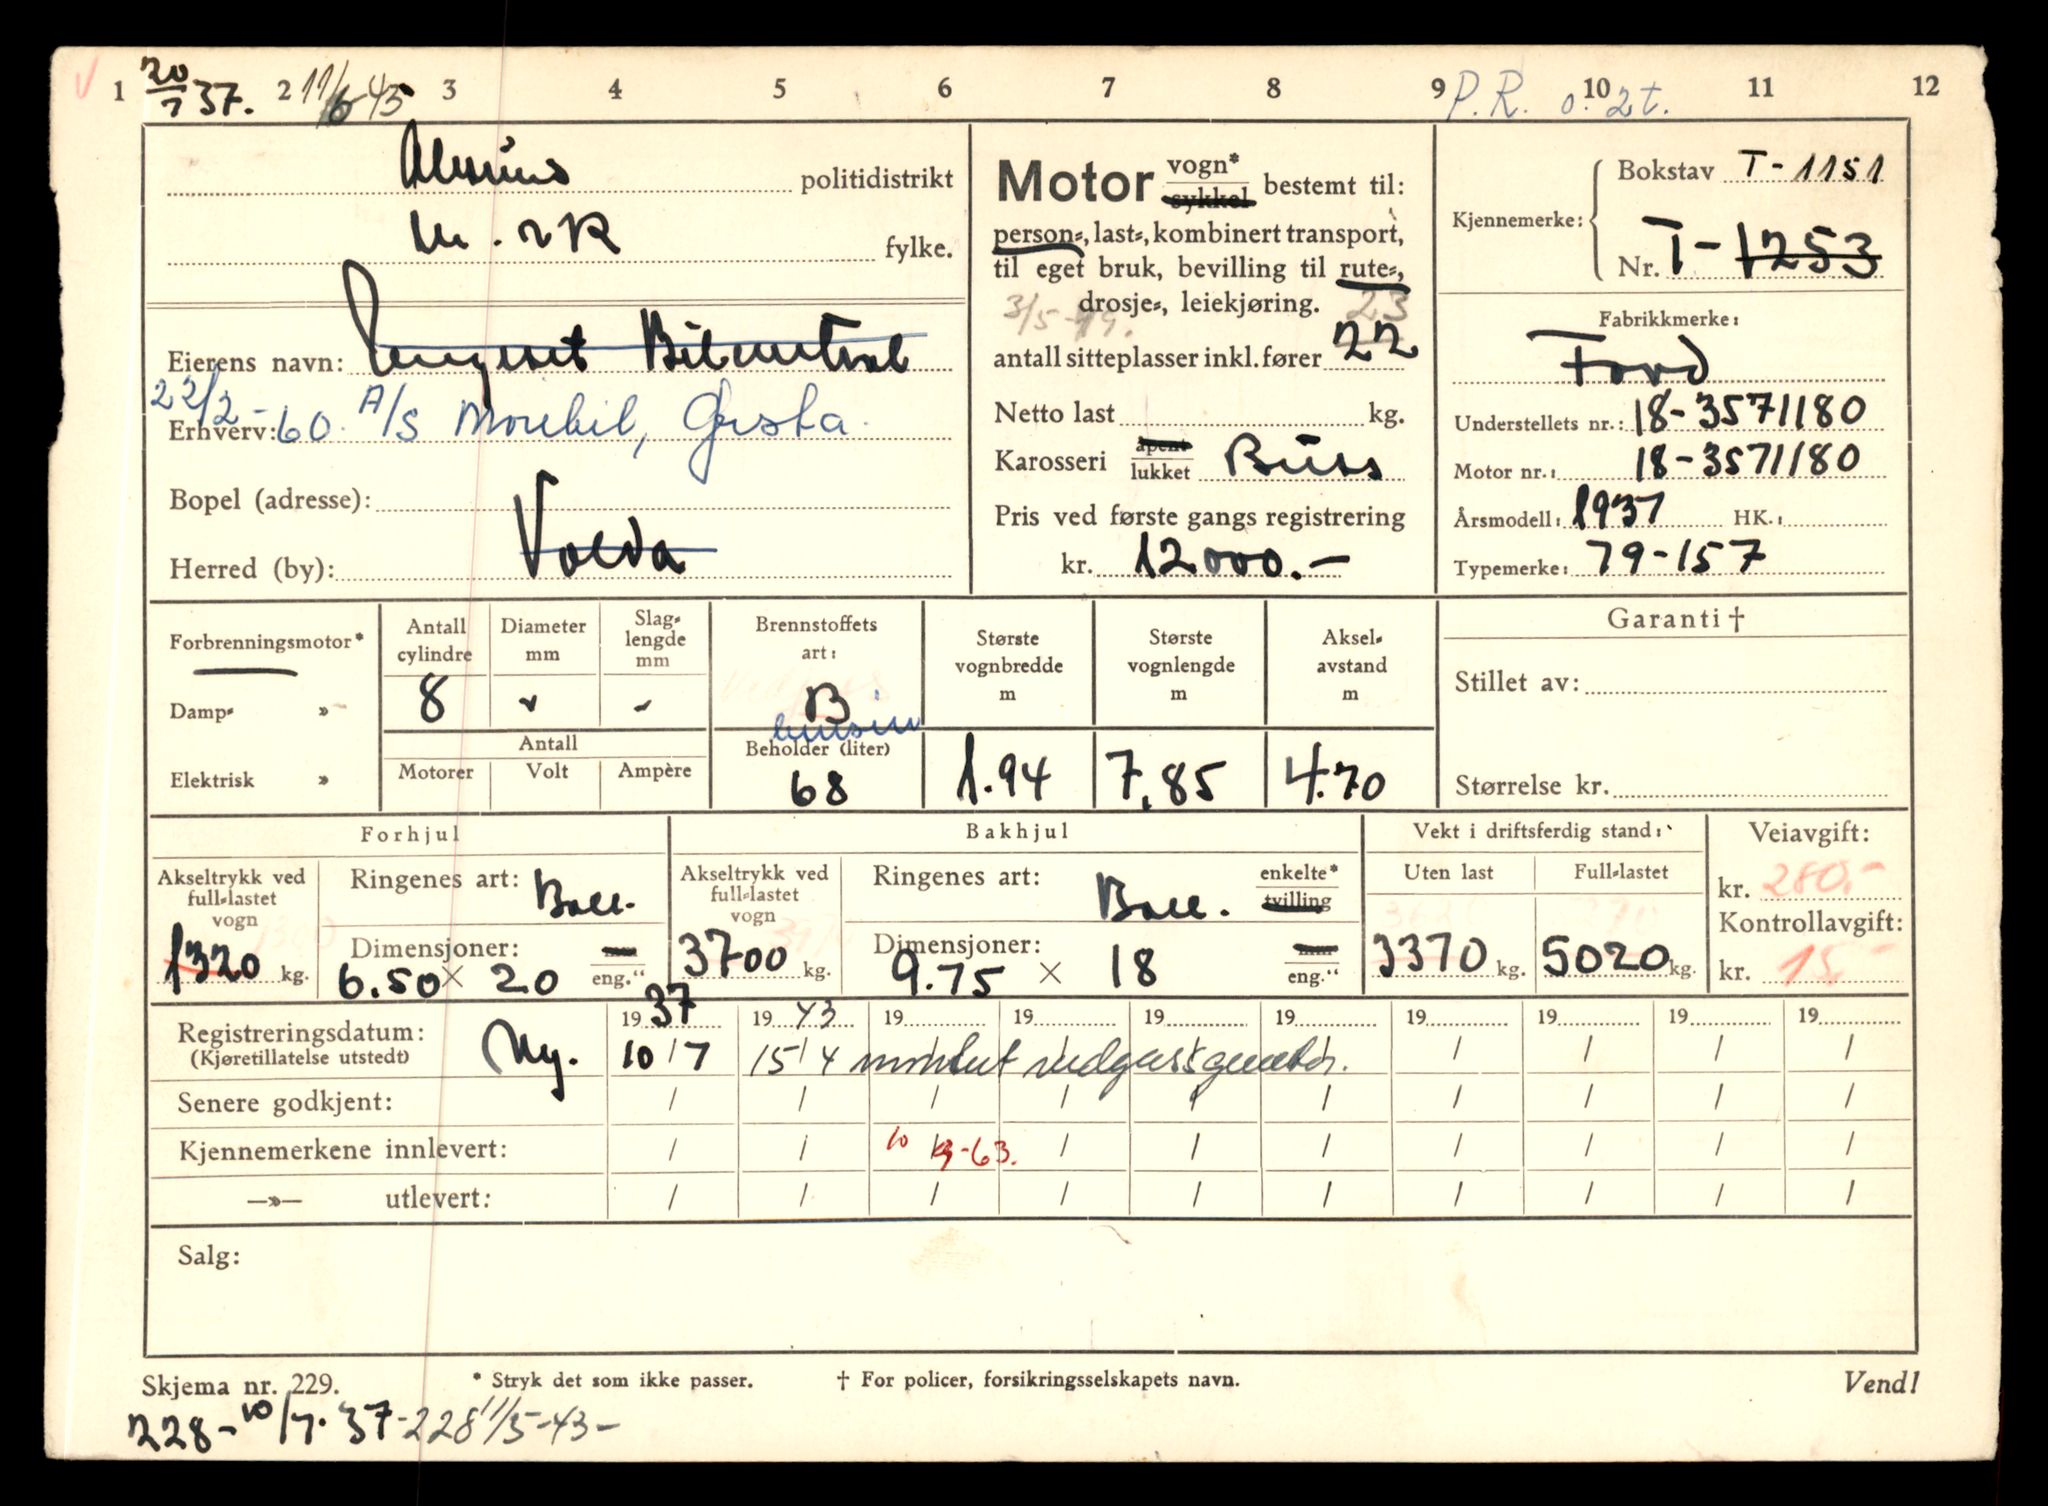 1 20/7 37. 2 11/6-45 3 4 5 6 7 8 9 P.R. 10 o. 2t. 11 12
politidistrikt
M. o R fylke.
Eierens navn: Bilcentral
22/2-60. A/S Mørebil, Gursta
Erhverv:
Bopel (adresse):
Herred (by): Volda
Motor vogn* sykkel bestemt til:
person-, last-, kombinert transport,
til eget bruk, bevilling til rute-,
drosje-, leiekjøring. 23
3/5-49.
antall sitteplasser inkl. fører 22
Netto last kg.
Karosseri åpent lukket Buss
Pris ved første gangs registrering
kr. 12000.-
Kjennemerke: Bokstav T-1151
Nr. T-1253
Fabrikkmerke:
Ford
Understellets nr.: 18-3571180
Motor nr.: 18-3571180
Årsmodell: 1937 HK.:
Typemerke: 79-157
Forbrenningsmotor*
Damp- »
Elektrisk »
Antall cylindre
8
Diameter mm
Slag-lengde mm
Antall
Motorer Volt Ampère
Brennstoffets art:
B
bensin
Beholder (liter)
68
Største vognbredde m
1.94
Største vognlengde m
7.85
Aksel-avstand m
4.70
Garanti †
Stillet av:
Størrelse kr.
Forhjul
Akseltrykk ved full-lastet vogn
1320 kg.
Ringenes art: Ball.
Dimensjoner: 6.50 × 20 eng."
Bakhjul
Akseltrykk ved full-lastet vogn
3700 kg.
Ringenes art: Ball. enkelte* tvilling
Dimensjoner: 9.75 × 18 eng."
Vekt i driftsferdig stand:
Uten last
3370 kg.
Full-lastet
5020 kg.
Veiavgift:
kr. 280.-
Kontrollavgift:
kr. 15.-
Registreringsdatum: 19 37 19 43 19 19 19 19 19 19 19 19
(Kjøretillatelse utstedt) Ny. 10/7 15/4 montert vedgassgenerator.
Senere godkjent:
Kjennemerkene innlevert: 10 -63.
—»— utlevert:
Salg:
Skjema nr. 229. * Stryk det som ikke passer. † For policer, forsikringsselskapets navn. Vend!
228-10/7.37-228 11/5-43-